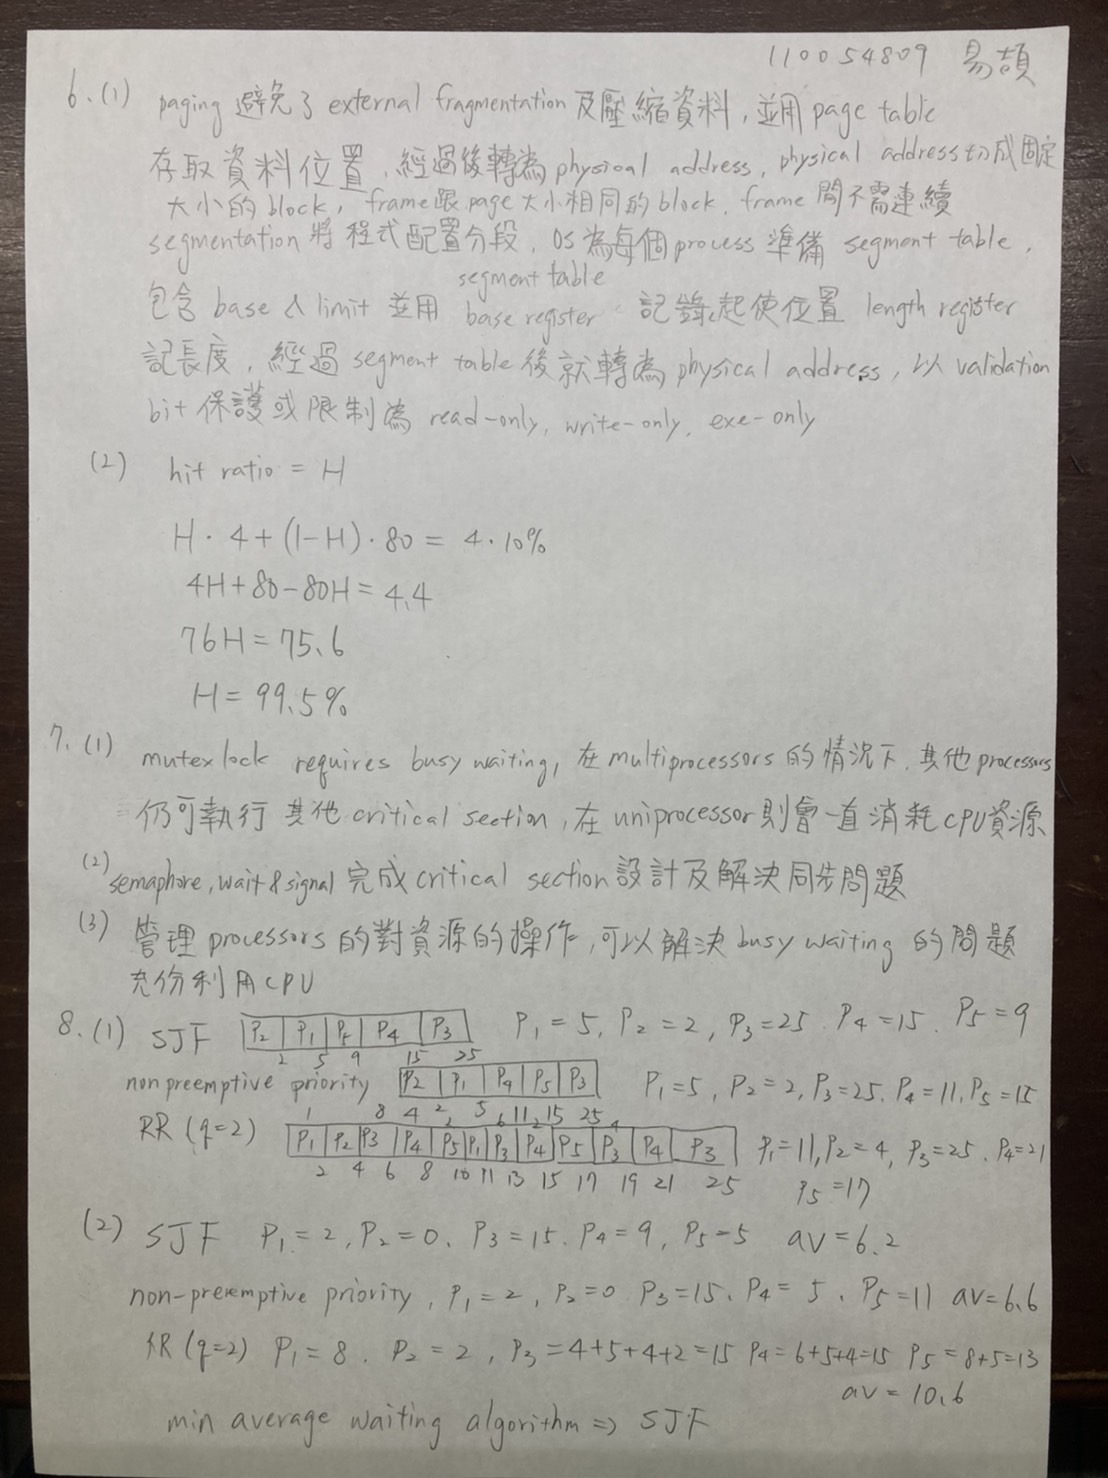 110054809 易頡
6.(1) paging 避免了 external fragmentation 及壓縮資料,並用 page table
存取資料位置,經過後轉為 physical address, physical address切成固定
大小的 block, frame跟page大小相同的block. frame 間不需連續
segmentation 將程式配置分段. OS為每個process 準備 segment table,
segment table
包含 base & limit 並用 base register 記錄起使位置 length register
記長度,經過 segment table 後就轉為 physical address, 以 validation
bit 保護或限制為 read-only, write-only, exe-only
(2) hit ratio = H
H · 4 + (1-H) · 80 = 4 · 10%
4H+80-80H = 4.4
76H = 75.6
H = 99.5%
7.(1) mutex lock requires busy waiting, 在multiprocessors的情況下.其他processors
仍可執行 其他critical section,在uniprocessor則會一直消耗CPU資源
(2) semaphore, wait & signal 完成critical section設計及解決同步問題
(3) 管理 processors 的對資源的操作,可以解決 busy waiting 的問題
充份利用CPU
8.(1) SJF P2 P1 P5 P4 P3 P1 = 5, P2 = 2, P3 = 25. P4 = 15. P5 = 9
2 5 9 15 25
nonpreemptive priority P2 P1 P4 P5 P3 P1=5, P2=2, P3=25. P4=11, P5=15
1 8 4 2 2 5 6 11 2 15 25 4
RR (q=2) P1 P2 P3 P4 P5 P1 P3 P4 P5 P3 P4 P3 P1=11, P2=4, P3=25. P4=21
2 4 6 8 10 11 13 15 17 19 21 25 P5=17
(2) SJF P1=2, P2=0. P3=15. P4=9, P5=5 av=6.2
non-preemptive priority, P1=2, P2=0 P3=15. P4=5. P5=11 av=6.6
RR (q=2) P1=8. P2=2, P3=4+5+4+2=15 P4=6+5+4=15 P5=8+5=13
av=10.6
min average waiting algorithm => SJF